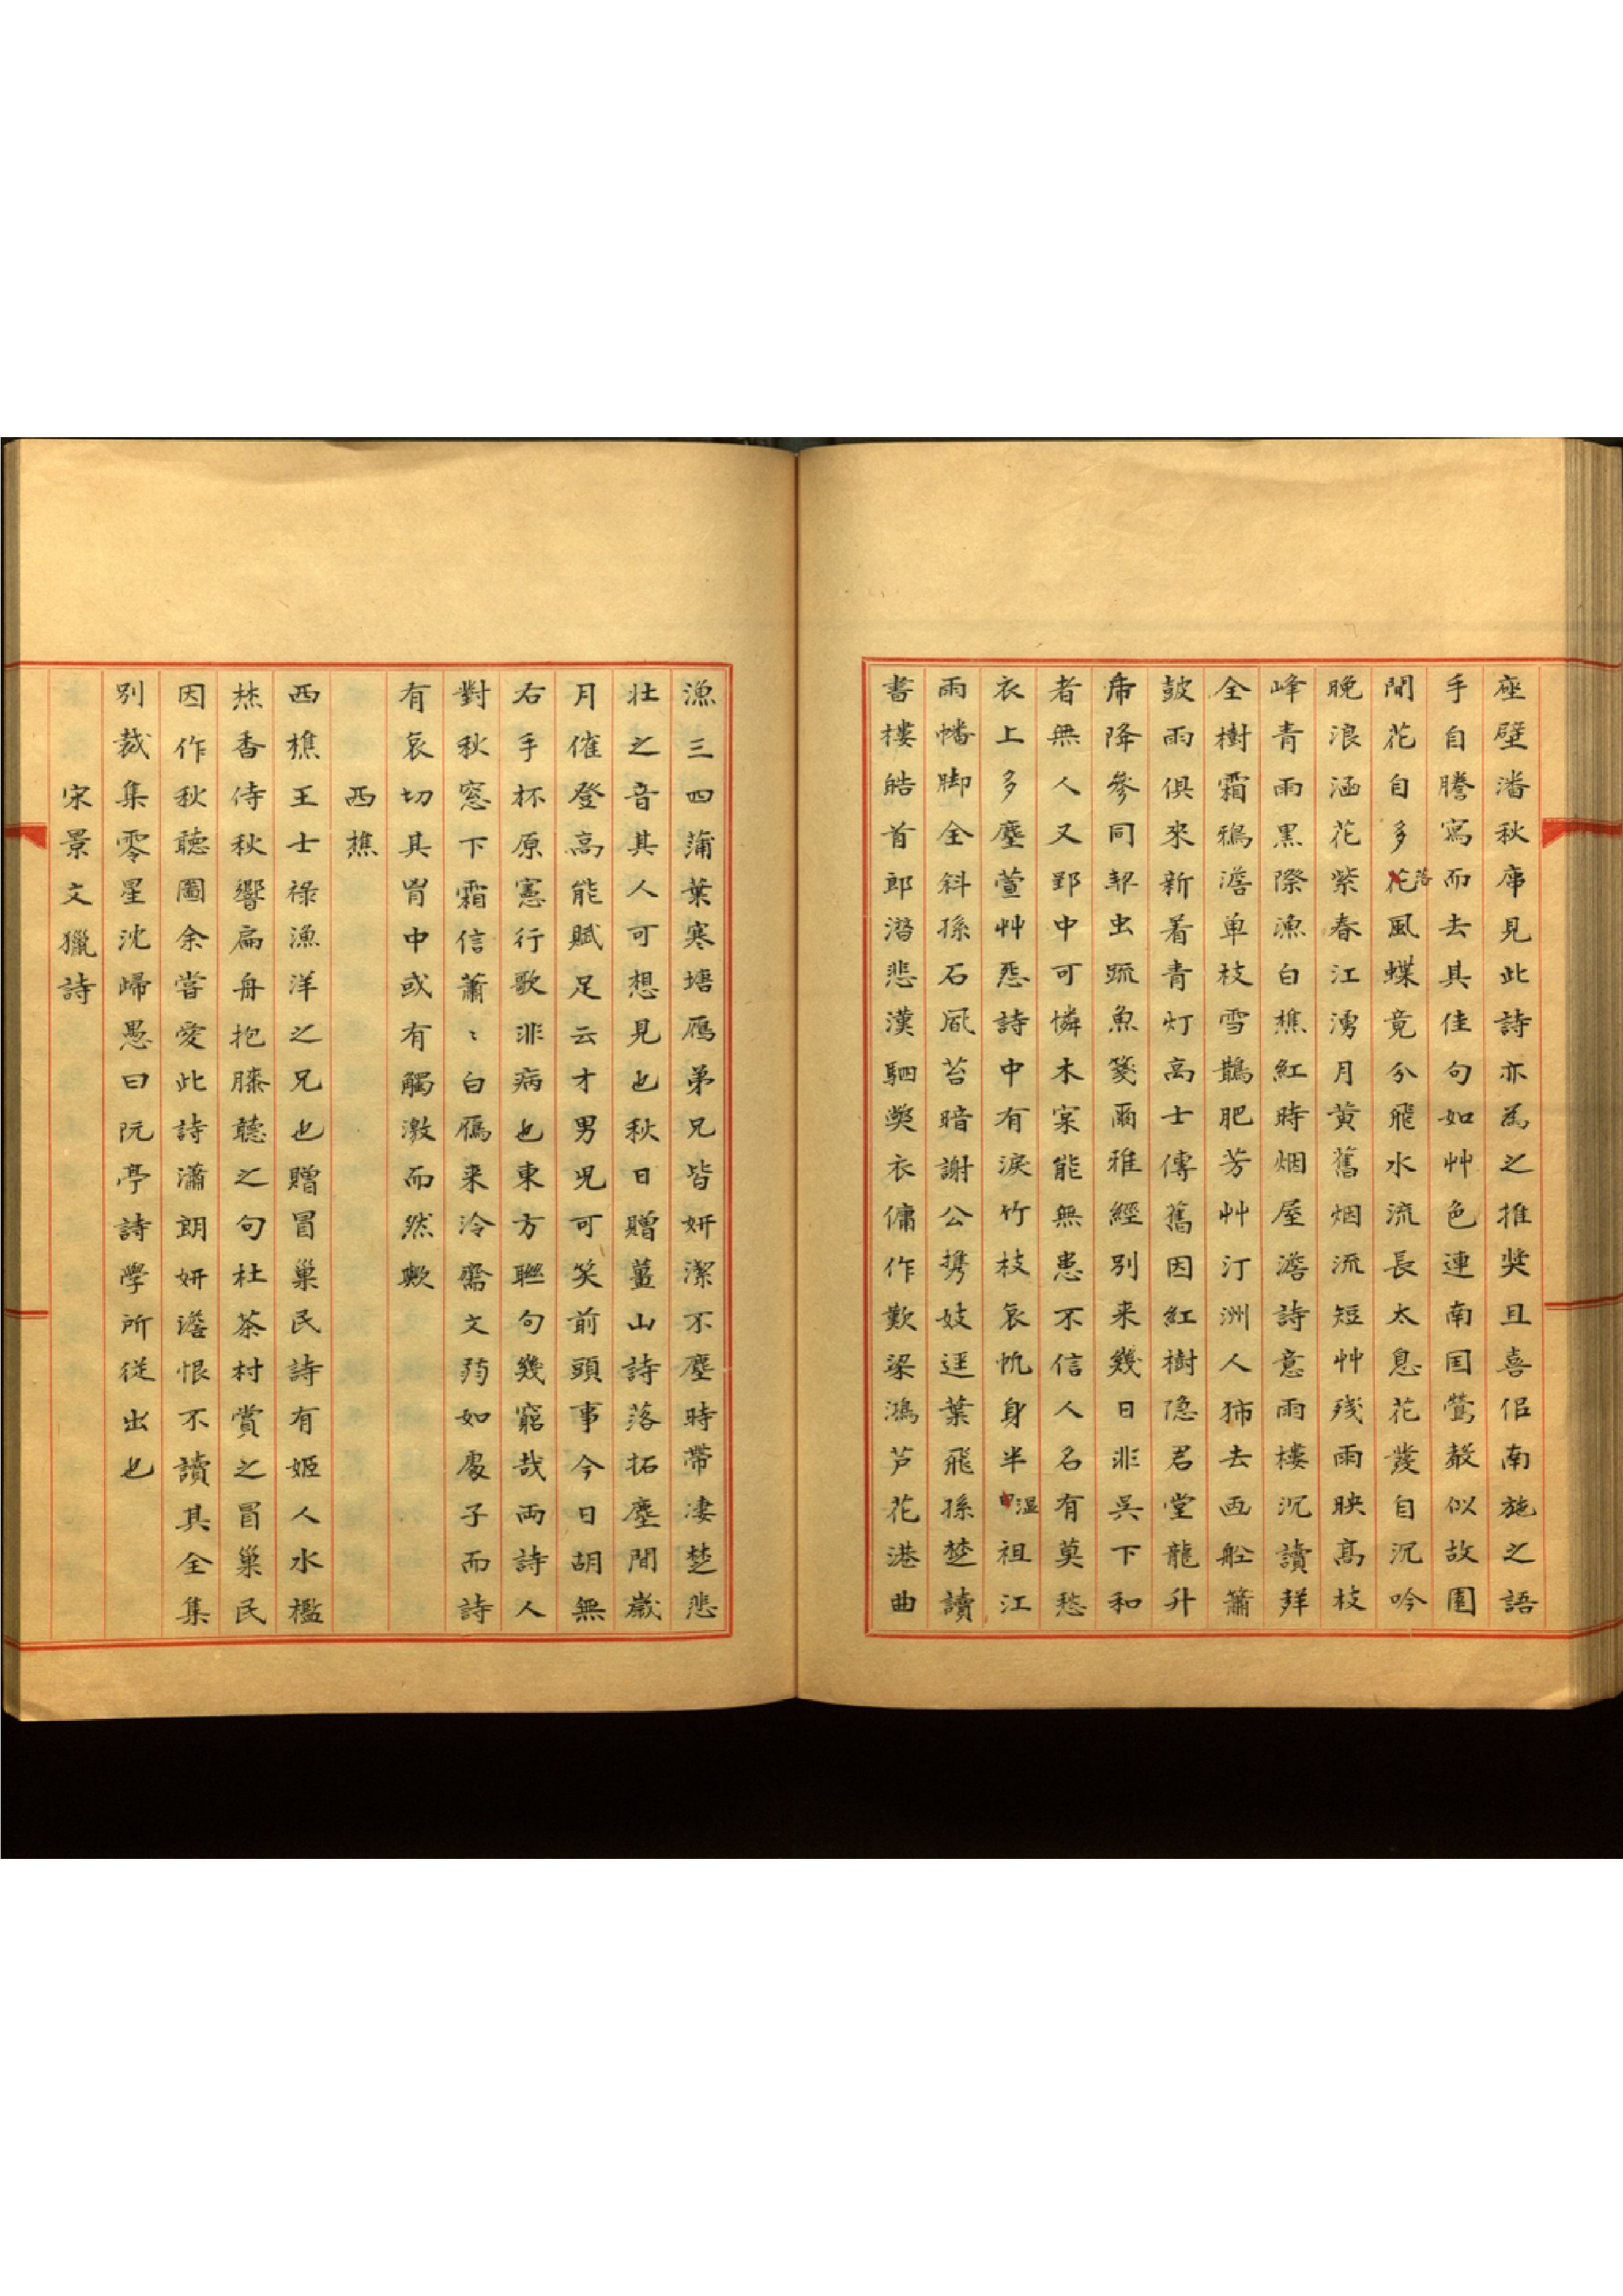 座壁潘秋庫見此詩亦為之推奖且喜佀南施之語
手自謄寫而去其佳句如艸色連南囯鶯聲似故園
閒花自多落風蝶竟分飛水流長太息花發自沉吟
晚浪涵花紫春江湧月黄舊烟流短艸残雨映髙枝
峰青雨黑際漁白樵紅時烟屋澹詩意雨樓沉讀聲
全樹霜鴉澹单枝雪鵲肥芳艸汀洲人㧊去画船簫
皷雨俱來新着青灯高士傳舊因紅樹隐君堂龍升
席降參同契虫䟽魚箋爾雅經別来幾日非吳下和
者無人又郢中可憐木寀能無患不信人名有莫愁
衣上多塵萱艸怨詩中有淚竹枝哀帆身半湿祖江
雨幡脚全斜孫石㕓苔暗謝公携妓逕葉飛孫楚讀
書樓皓首郎潛悲漢駟獘衣傭作歎梁鴻芦花港曲
漁三四蒲葉寒塘鴈弟兄皆妍潔不塵時帶凄楚悲
壮之音其人可想見也秋日贈薑山詩落拓塵間歲
月催登高能賦足云才男児可笑前頭事今日胡無
右手杯原憲行歌非病也東方聮句幾窮哉両詩人
對秋窓下霜信蕭〻白鴈来泠齋文蒟如處子而詩
有哀切其胷中或有觸激而然歟
西樵
西樵王士禄漁洋之兄也贈冒巢民詩有姬人水檻
焚香侍秋響扁舟抱膝聽之句杜茶村賞之冒巢民
因作秋聽圖余嘗愛此詩瀟朗妍澹恨不讀其全集
別裁集零星沈歸愚曰阮亭詩學所従出也
宋景文獵詩